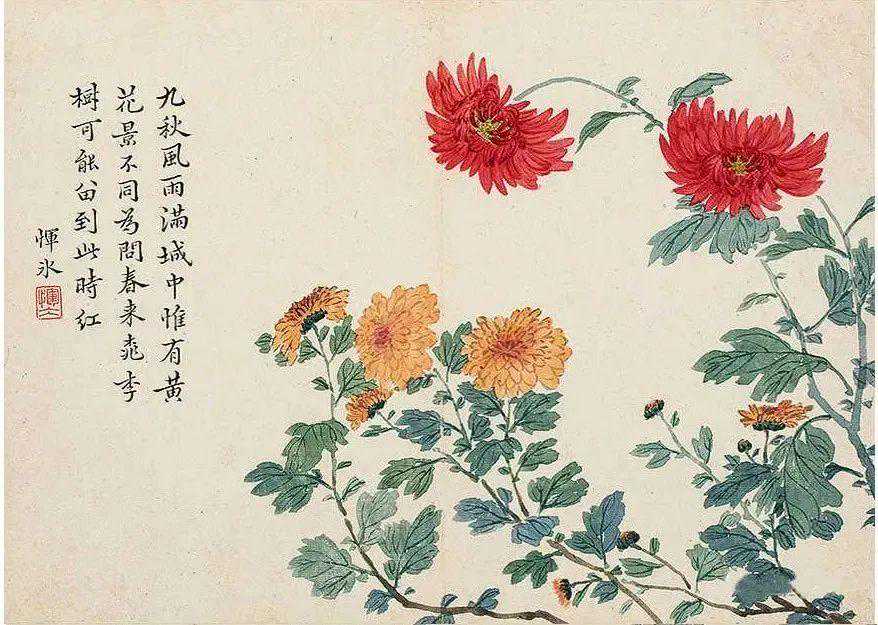 九秋風雨滿城中惟有黄
花景不同為問春来桃李
樹可能留到此時红
惲冰